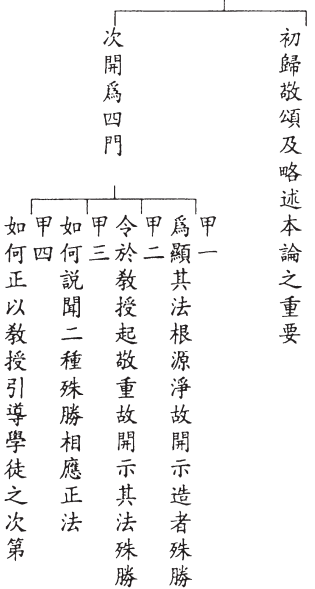 初歸敬頌及略述本論之重要
次開爲四門
甲一
爲顯其法根源淨故開示造者殊勝
甲二
令於教授起敬重故開示其法殊勝
甲三
如何說聞二種殊勝相應正法
甲四
如何正以教授引導學徒之次第